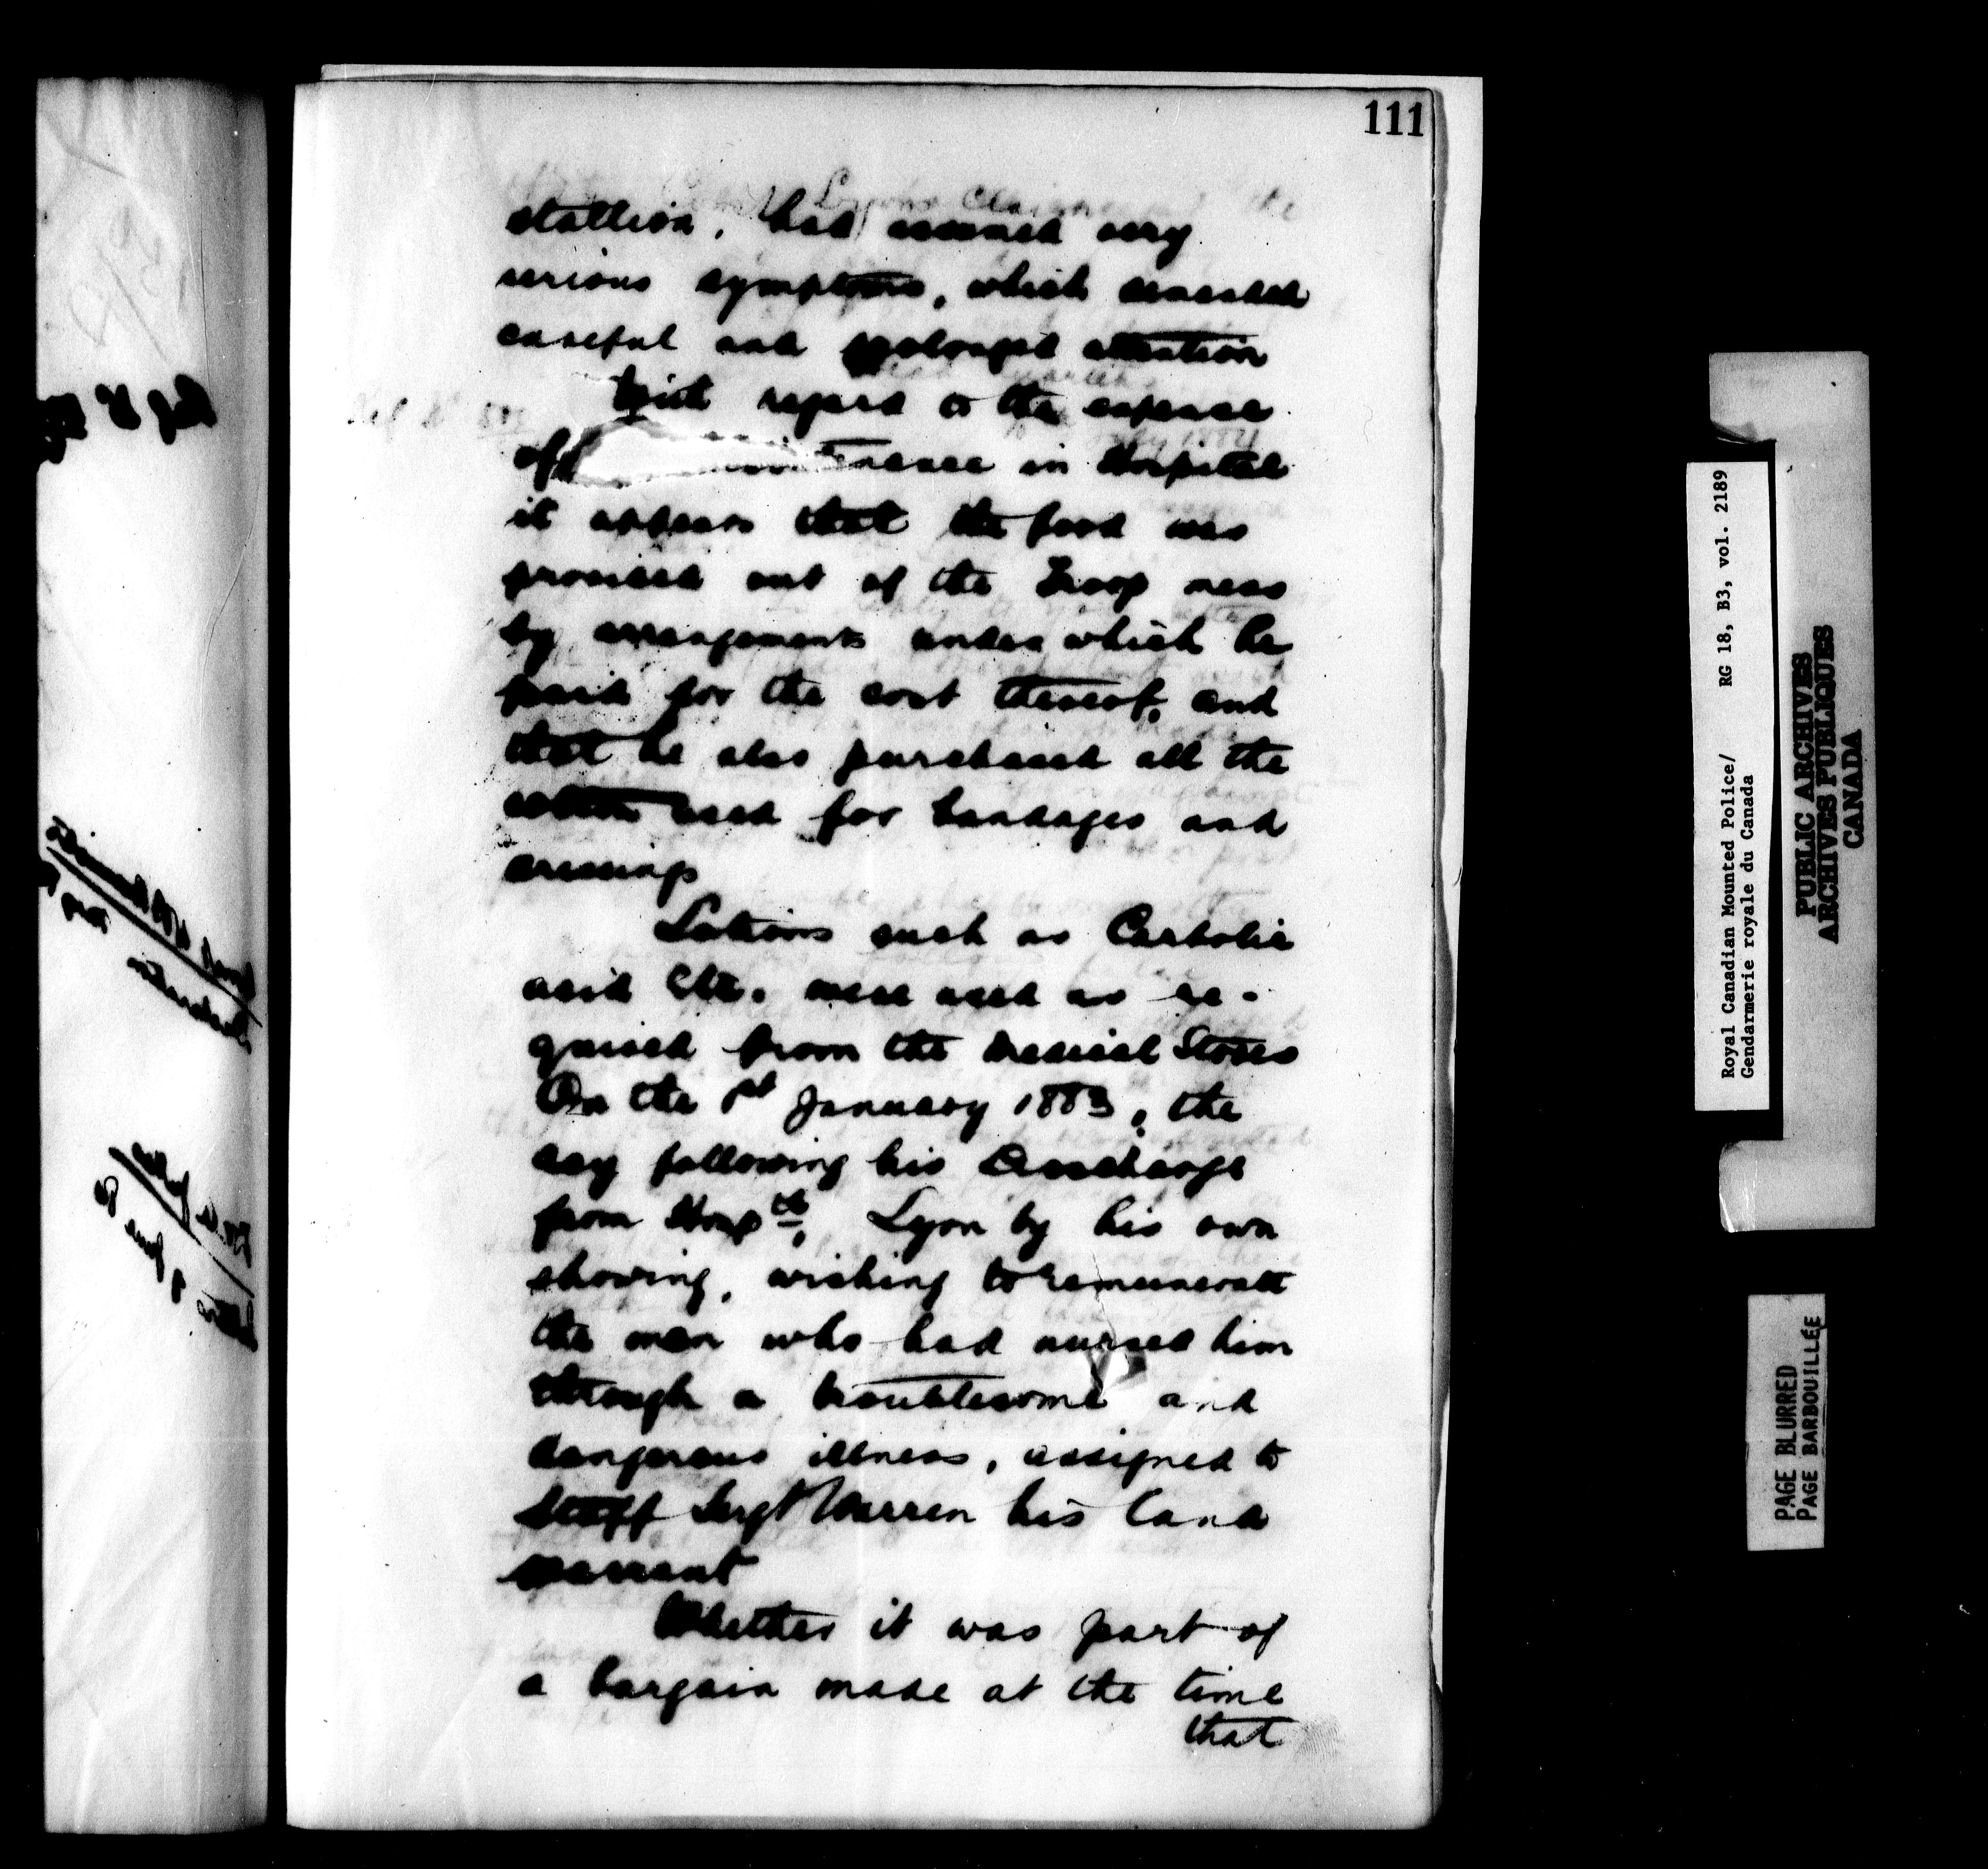 111
stallion, had assumed very
serious symptoms, which demanded
careful and prolonged attention
With regard to the expense
of in Hospital
it appears that the food was
provided out of the Troop mess
by arrangements under which he
paid for the cost thereof, and
that he also purchased all the
cotton used for bandages and
dressings
Lotions such as Carbolic
acid &tc. were used as re-
quired from the Medical Stores
On the 1st January 1883, the
day following his Discharge
from Hospl, Lyon by his own
showing, wishing to remunerate
the men who had nursed him
through a troublesome and
dangerous illness, assigned to
Staff Sergt Warren his land
warrant
Whether it was part of
a bargain made at the time
that
Royal Canadian Mounted Police/ RG 18, B3, vol. 2189
Gendarmerie royale du Canada
PUBLIC ARCHIVES
ARCHIVES PUBLIQUES
CANADA
PAGE BLURRED
PAGE BARBOUILLÉE